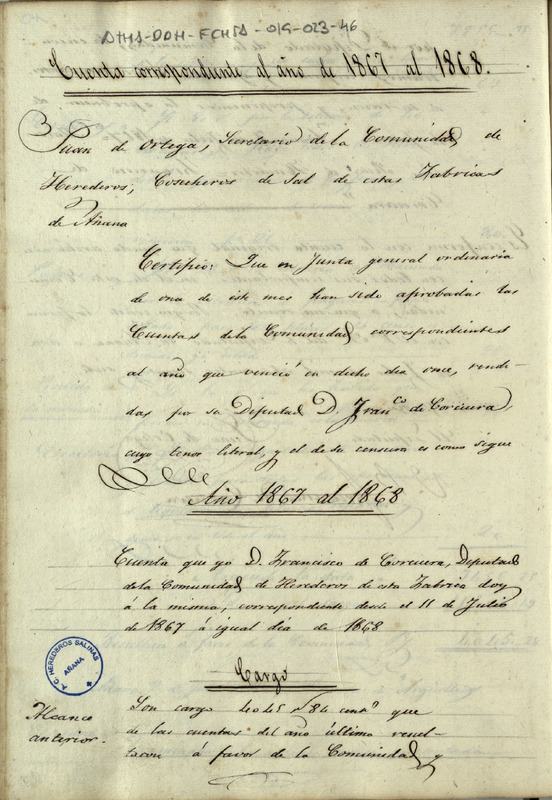 ATHA-DAH-FCHSA-019-023-46
Cuenta correspondiente al año de 1867 al 1868.
Juan de Ortega, Secretario de la Comunidad de
Herederos, Cosecheros de Sal de estas Fabricas
de Añana
Certifico: Que en Junta general ordinaria
de once de este mes han sido aprobadas las
Cuentas de la Comunidad correspondientes
al año que venció en dicho dia once, rendi-
das por su Diputad D. Fran.co de Corcuera,
cuyo tenor literal, y el de su censura es como sigue
Año 1867 al 1868
Cuenta que yo D. Francisco de Corcuera, Diputado
de la Comunidad de Herederos de esta Fabrica doy
á la misma, correspondiente desde el 11 de Julio
de 1867 á igual dia de 1868
A.C. HEREDEROS SALINAS
AÑANA
Cargo
Alcance
anterior.
Son cargo 4045 84 cent.s que
de las cuentas del año último resul-
taron á favor de la Comunidad y